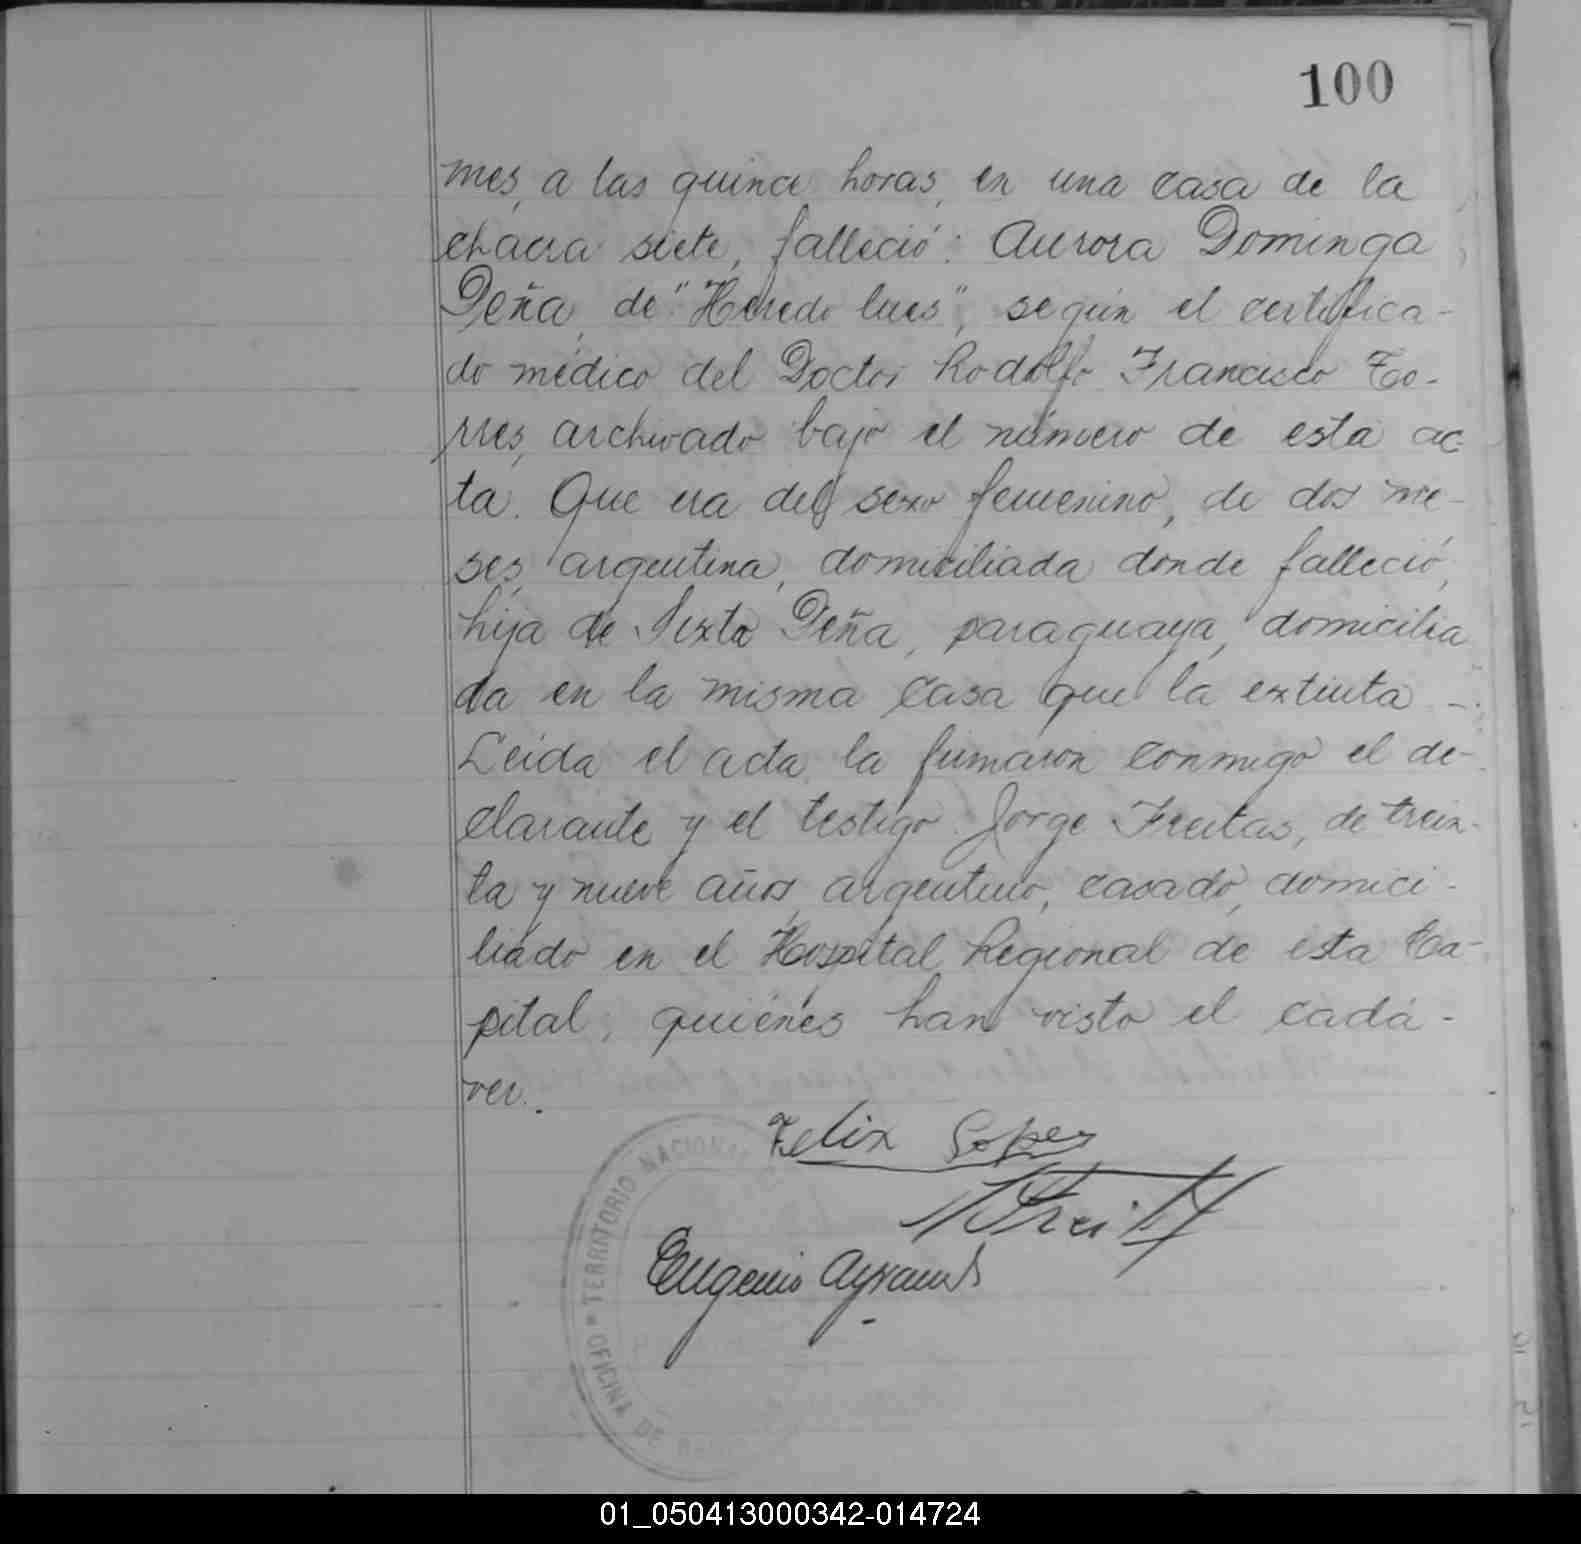 100
mes, a las quince horas, en una casa de la
chacra siete, falleció: Aurora Dominga
Peña, de "Heredo lues", según el certifica-
do médico del Doctor Rodolfo Francisco To-
rres, archivado bajo el número de esta ac-
ta. Que era del sexo femenino, de dos me-
ses, argentina, domiciliada donde falleció,
hija de Sixta Peña, paraguaya, domicilia
da en la misma casa que la extinta -.
Leída el acta, la firmaron conmigo el de-
clarante y el testigo Jorge Freitas, de trein-
ta y nueve años, argentino, casado, domici-
liado en el Hospital Regional de esta Ca-
pital, quiénes han visto el cadá-
ver.
Felix Lopez
Eugenio
OFICINA DE TERRITORIO NACIONAL
01_050413000342-014724